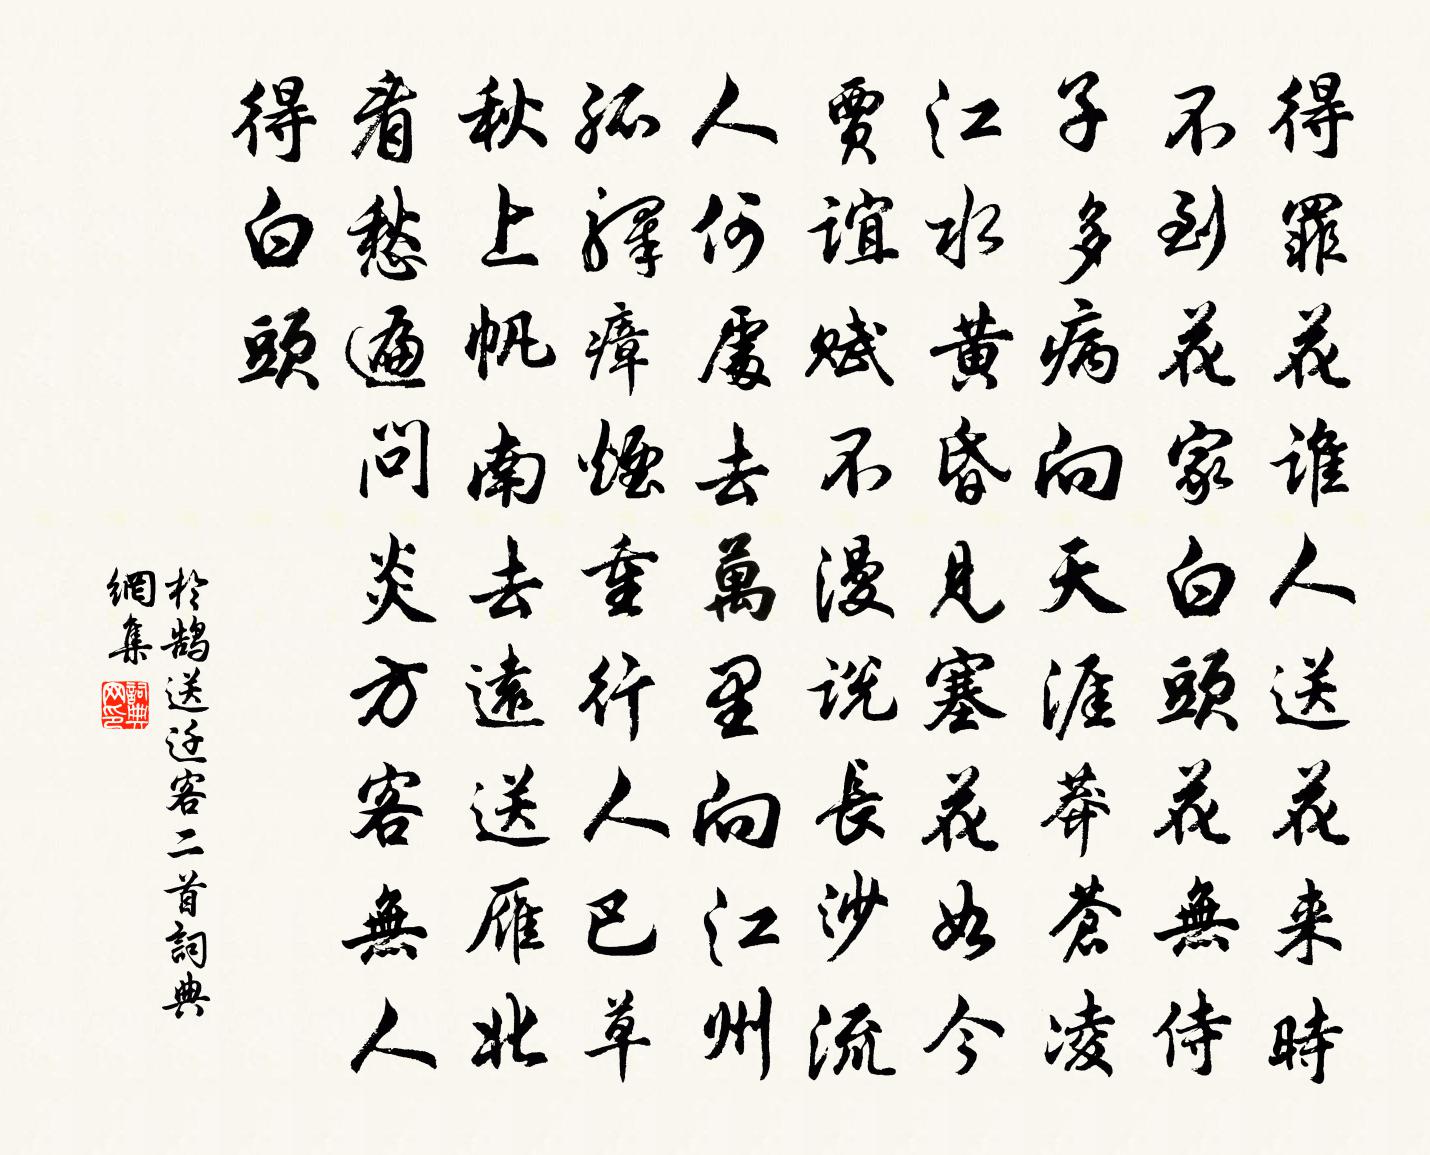 得罪花誰人送花来時
不到花家白頭花無侍
子多病向天涯莽蒼凌
江水黄昏見塞花如今
賈誼賦不漫説長沙流
人何處去萬里向江州
孤驛瘴煙重行人巴草
秋上帆南去遠送雁北
看愁遍問炎方客無人
得白頭
於鵠送迁客二首詞典
網集
詞典网印